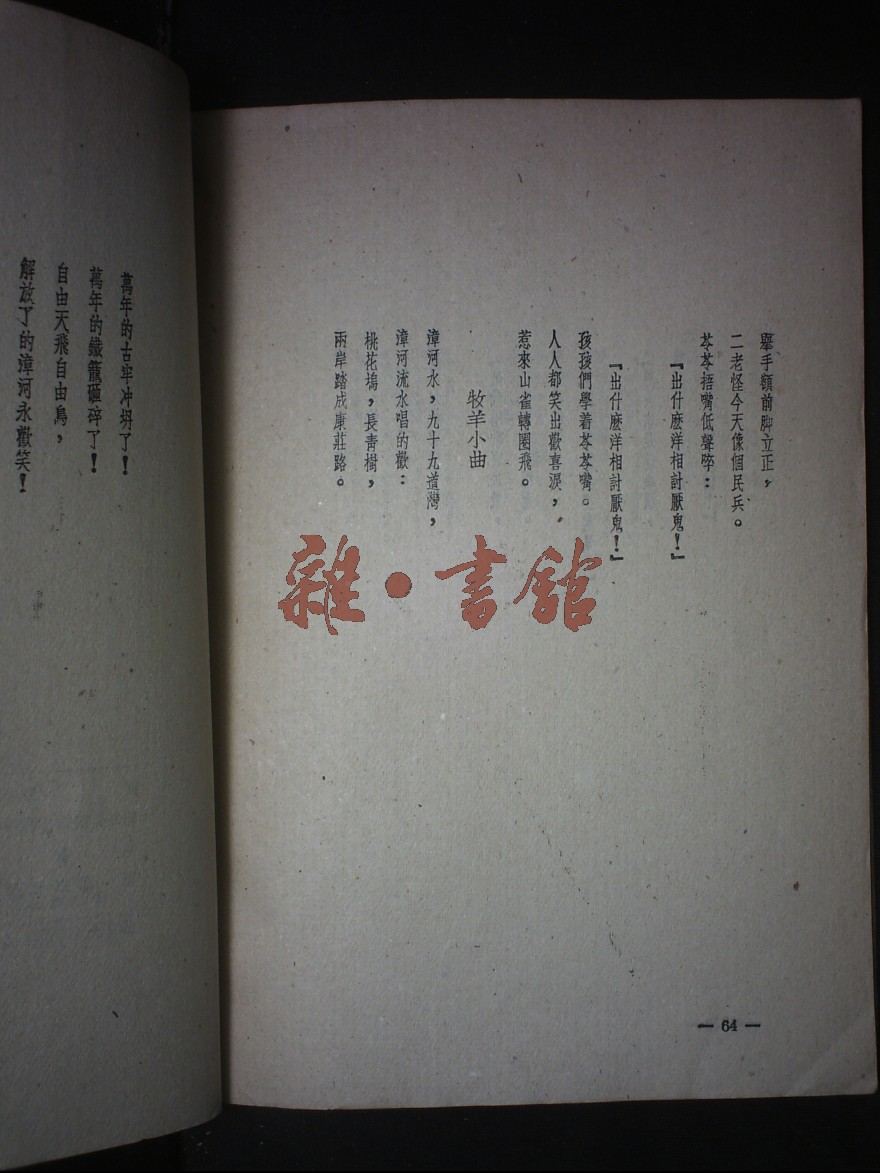 舉手額前脚立正，
二老怪今天像個民兵。
苓苓捂嘴低聲啐：
『出什麽洋相討厭鬼！』
『出什麽洋相討厭鬼！』
孩孩們學着苓苓嘴。
人人都笑出歡喜淚，
惹來山雀轉圈飛。
牧羊小曲
漳河水，九十九道灣，
漳河流水唱的歡：
桃花塢，長青樹，
兩岸踏成康莊路。
— 64 —
萬年的古牢冲坍了！
萬年的鐵籠砸碎了！
自由天飛自由鳥，
解放了的漳河永歡笑！
雜·書館